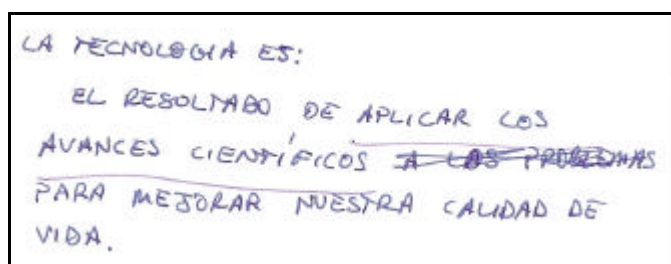 LA TECNOLOGIA ES:
EL RESOLTADO DE APLICAR LOS
AVANCES CIENTÍFICOS A LAS PROBLEMAS
PARA MEJORAR NUESTRA CALIDAD DE
VIDA.